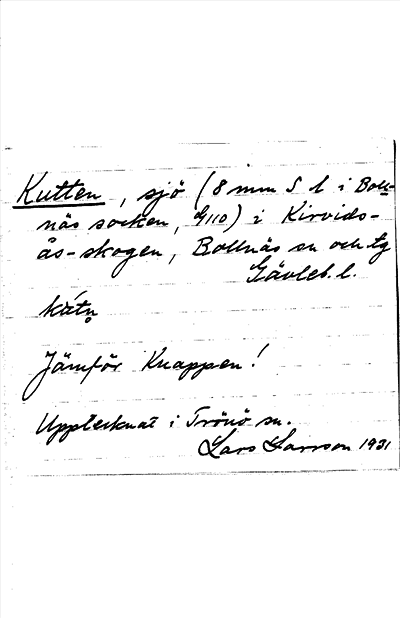 Kutten, sjö (8 mm S l i Boll-
näs socken, G110) i Kirvids-
ås-skogen, Bollnäs sn och tg
Gävleb. l.
kátn̥
Jämför Knappen!
Upptecknat i Trönö sn.
Lars Larsson 1931